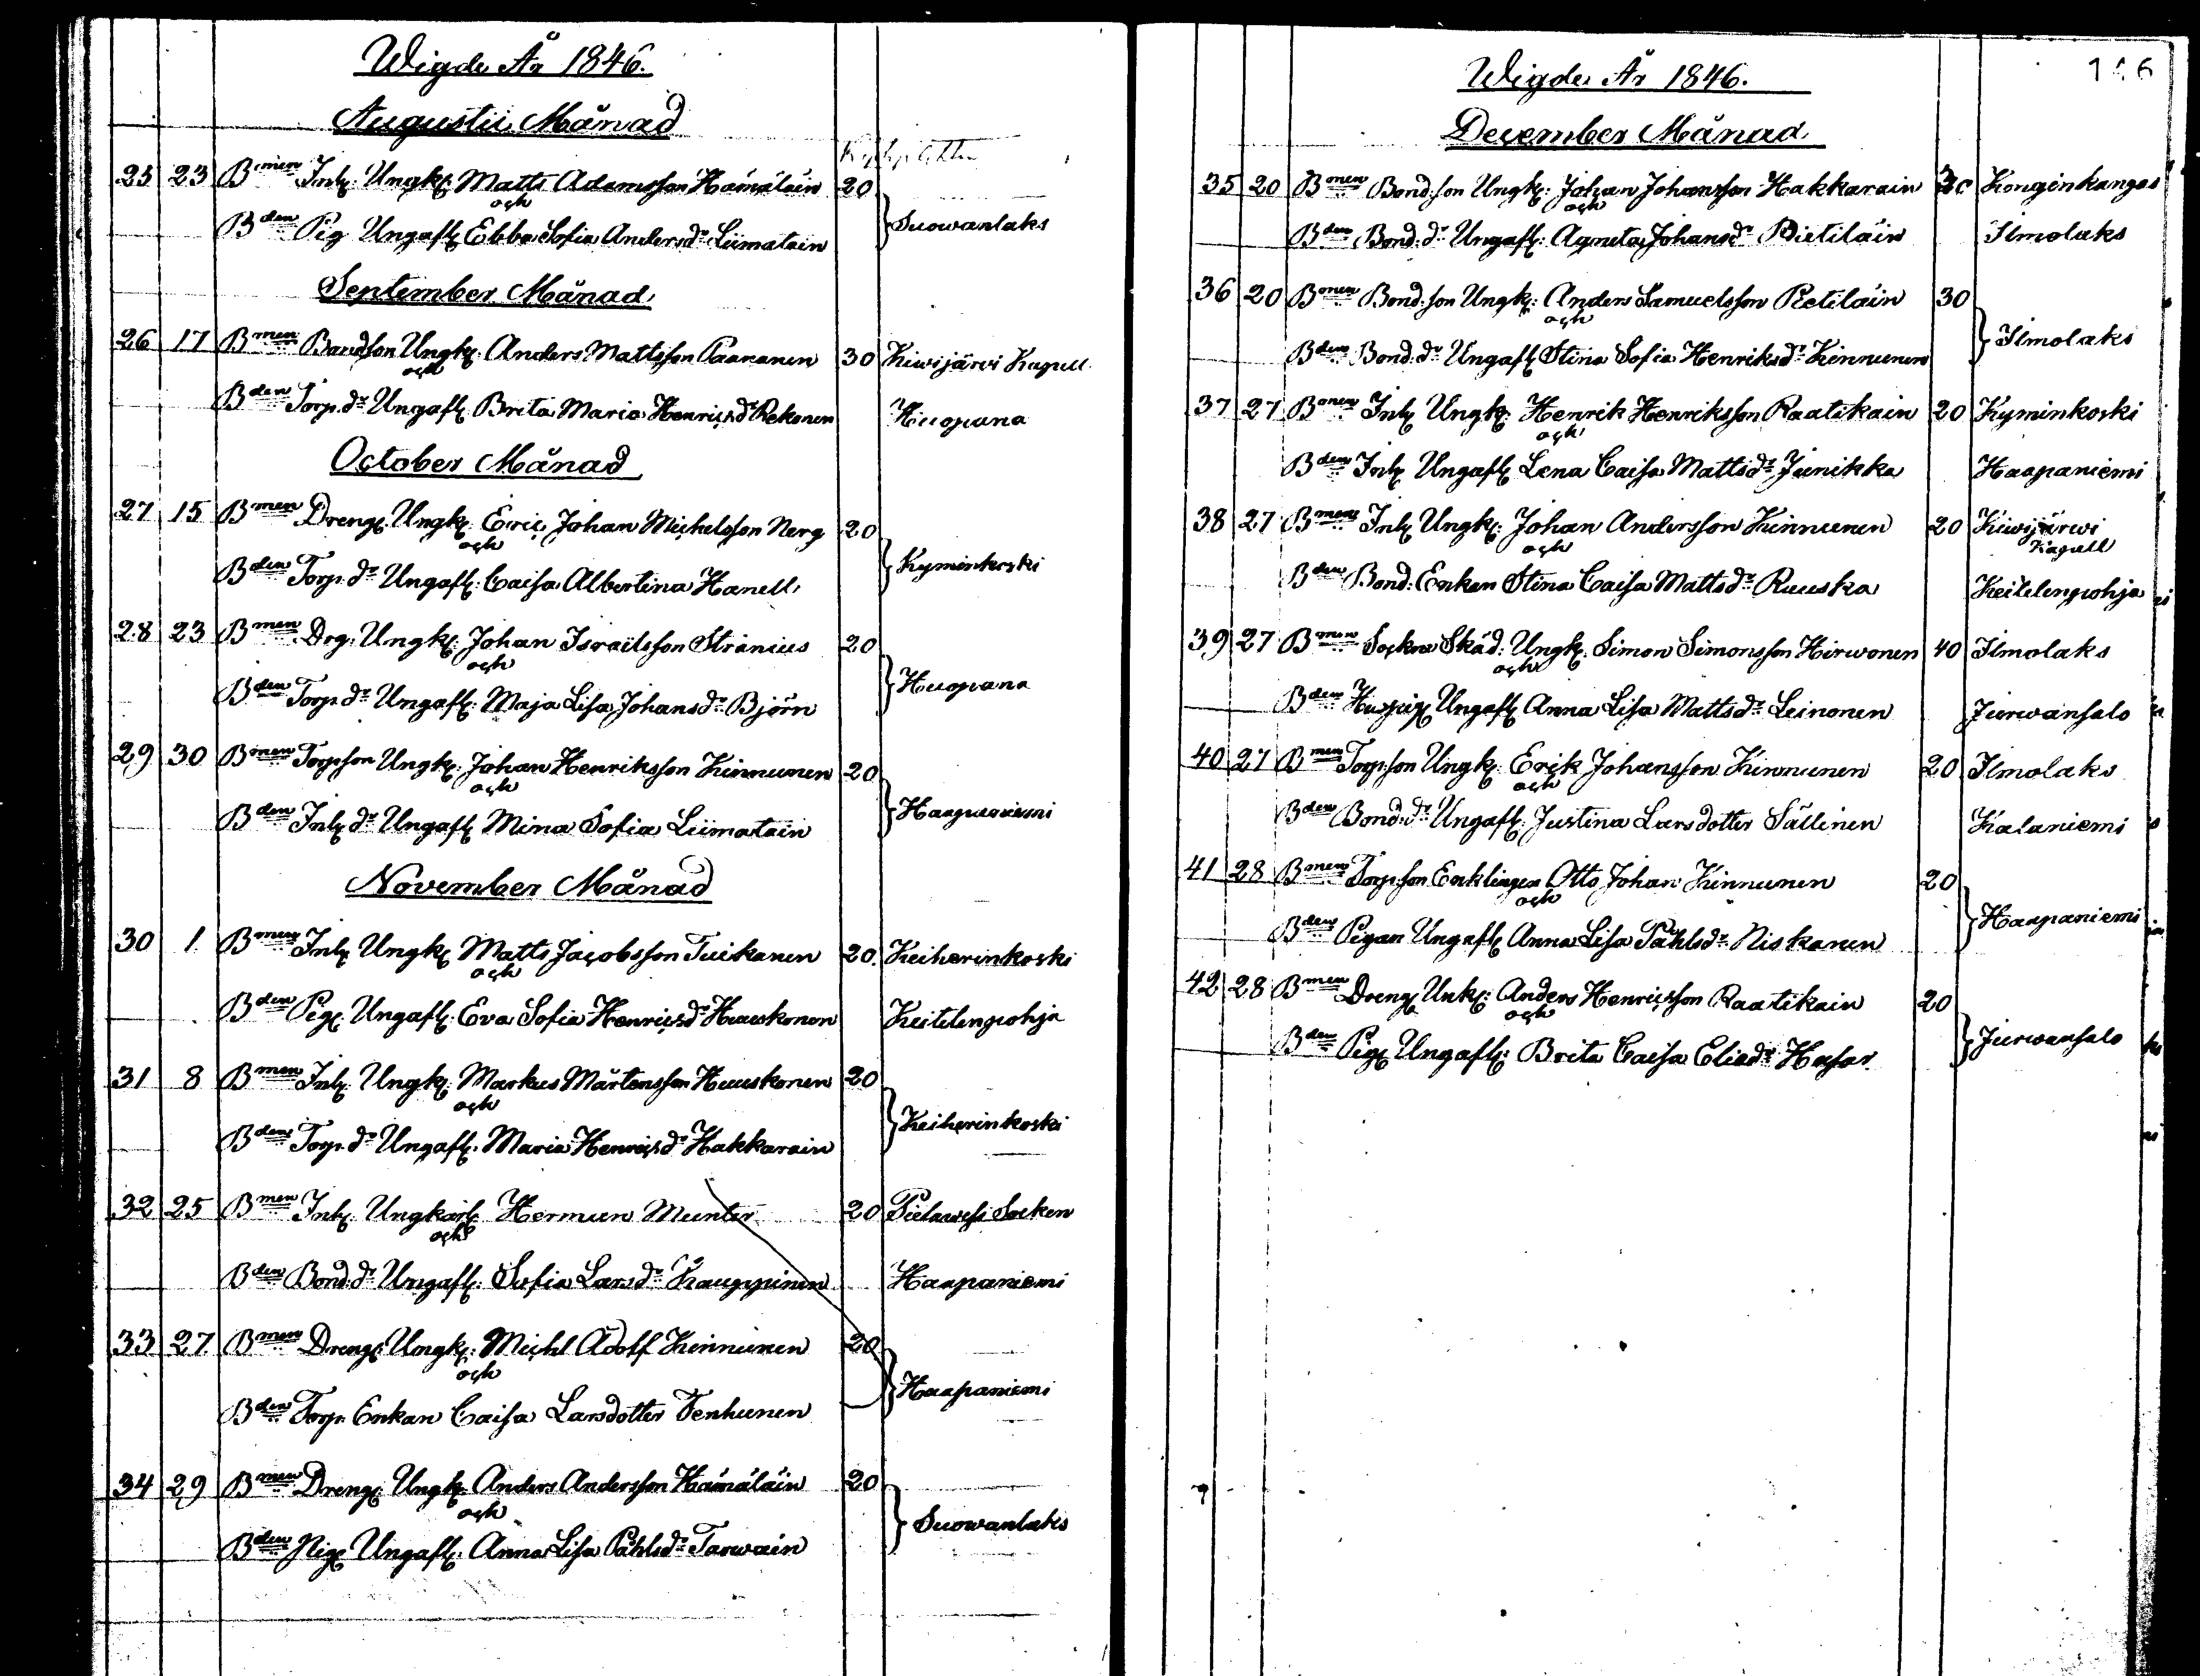 Wigde År 1846.
Augusti Månad
25 23 Bmen Inh: Ungk: Matts Adamsson Hämäläin 20
och
Bden Pig Ungafl: Ebba Sofia Andersdr Liimatain
Suowanlaks
September Månad
26 17 Bmen Bondson Ungk: Anders Mattsson Paananen 30 Kiwijärwi Kapell
och
Bden Torp. dr Ungafl: Brita Maria Henricsdr Rekonen Huopana
October Månad
27 15 Bmen Dreng: Ungk: Eric Johan Michelsson Nerg 20
och
Kyminkoski
Bden Torp. dr Ungafl: Caisa Albertina Hanell
28 23 Bmen Drg: Ungk: Johan Israelsson Stranius 20
och
Huopana
Bden Torp. dr Ungafl: Maja Lisa Johansdr Björn
29 30 Bmen Torpson Ungk: Johan Henriksson Kinnunen 20
och
Haapaniemi
Bden Inh: dr Ungafl: Mina Sofia Liimatain
November Månad
30 1 Bmen Inh: Ungk: Matts Jacobsson Tuikanen 20 Keiherinkoski
och
Bden Pig: Ungafl: Eva Sofia Henricsdr Huuskonen Keitelenpohja
31 8 Bmen Inh: Ungk: Markus Mårtensson Huuskonen 20
och
Keiherinkoski
Bden Torp. dr Ungafl: Maria Henricsdr Hakkarain
32 25 Bmen Inh: Ungkarl: Herman Munter 20 Pielawesi Socken
och
Bden Bond: dr Ungafl: Sofia Larsdr Kauppinen Haapaniemi
33 27 Bmen Dreng: Ungk: Michl Adolf Kinnunen 20
och
Haapaniemi
Bden Torp: Enkan Caisa Larsdotter Tenhunen
34 29 Bmen Dreng: Ungk: Anders Andersson Hämäläin 20
och
Suowanlaks
Bden Pig: Ungafl: Anna Lisa Påhlsdr Tarwain
Wigde År 1846.
December Månad
35 20 Bmen Bond: son Ungk: Johan Johansson Hakkarain 30 Konginkangas
och
Bden Bond: dr Ungafl: Agneta Johansdr Pietiläin Ilmolaks
36 20 Bmen Bond: son Ungk: Anders Samuelsson Pietiläin 30
och
Ilmolaks
Bden Bond: dr Ungafl: Stina Sofia Henriksdr Kinnunen
37 27 Bmen Inh: Ungk: Henrik Henriksson Raatikain 20 Kyminkoski
och
Bden Inh: Ungafl: Lena Caisa Mattsdr Junikka Haapaniemi
38 27 Bmen Inh: Ungk: Johan Andersson Kinnunen 20 Kiwijärwi
och Kapell
Bden Bond: Enkan Stina Caisa Mattsdr Ruuska Keitelenpohja
39 27 Bmen Sockne Skäd: Ungk: Simon Simonsson Hirwonen 40 Ilmolaks
och
Bden Huspig: Ungafl: Anna Lisa Mattsdr Leinonen Jurwansalo
40 27 Bmen Torp: son Ungk: Erik Johansson Kinnunen 20 Ilmolaks
och
Bden Bond: dr Ungafl: Justina Larsdotter Sällinen Kalaniemi
41 28 Bmen Torp: son Enklingen Otto Johan Kinnunen 20
och
Haapaniemi
Bden Pigan Ungafl: Anna Lisa Påhlsdr Niskanen
42 28 Bmen Dreng Unk: Anders Henricsson Raatikain 20
och
Jurwansalo
Bden Pig: Ungafl: Brita Caisa Eliedr Hasar